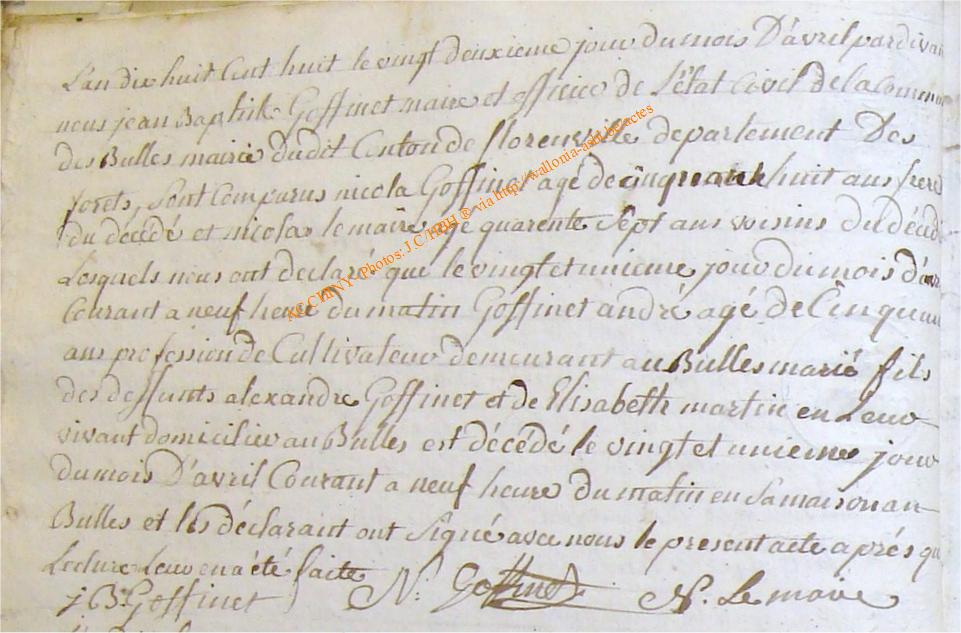 L'an dix huit Cent huit le vingt deuxieme jour du mois D'avril pardivan
nous jean Baptiste Goffinet maire et officier de L'état Civil de la Commune
des Bulles mairie dudit Canton de florenville departement Des
forets, sont Comparus nicola Goffinet agé de cinquante huit ans frere
du décédé et nicolas lemaire agé quarente Sept ans voisins du décédé
Lesquels nous ont declaré que le vingt et unieme jour du mois d'avril
Courant a neuf heure du matin Goffinet andré agé de Cinquan
ans profession de Cultivateur demeurant au Bulles marié fils
des deffunts alexandre Goffinet et de Elisabeth martin en Leur
vivant domicilier au Bulles est décédé le vingt et unieme jour
du mois D'avril Courant a neuf heure du matin en sa maison au
Bulles et les déclarant ont Signé avec nous le present acte après qu
Lecture Leur en a été faite
jB Goffinet N. Goffinet N. Lemaire